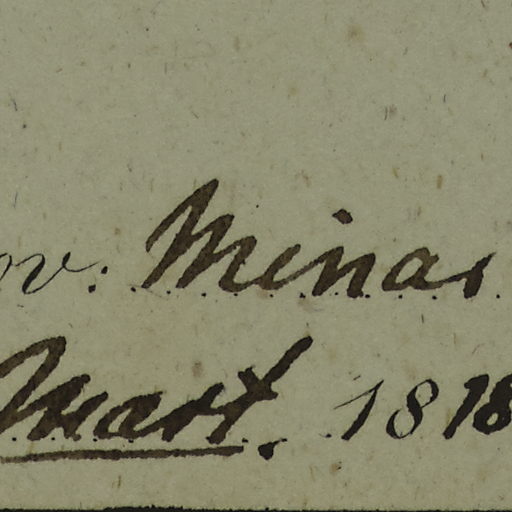 ov. Minas
Mart. 1818